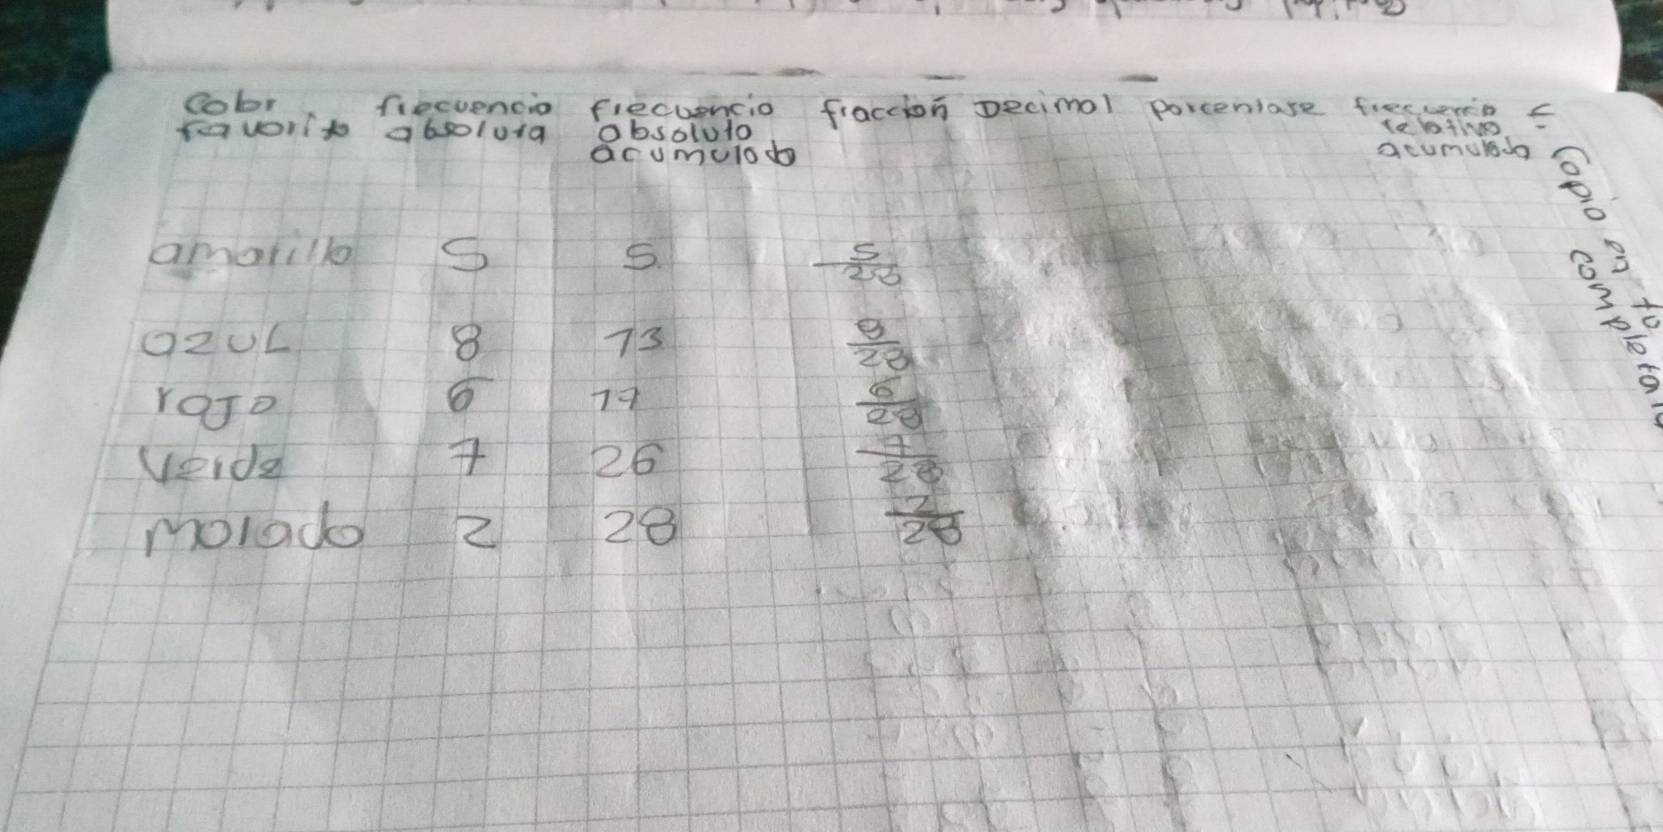 Color frecuencia frecuencia fracción Decimal porcentaje frecuencia
favorito absoluta absoluta relativa
acumulada acumulada
amarillo 5 5 5/28
azUL 8 13 8/28
rojo 6 19 6/28
Verde 7 26 7/28
Morado 2 28 2/28
Copio en tu
completar